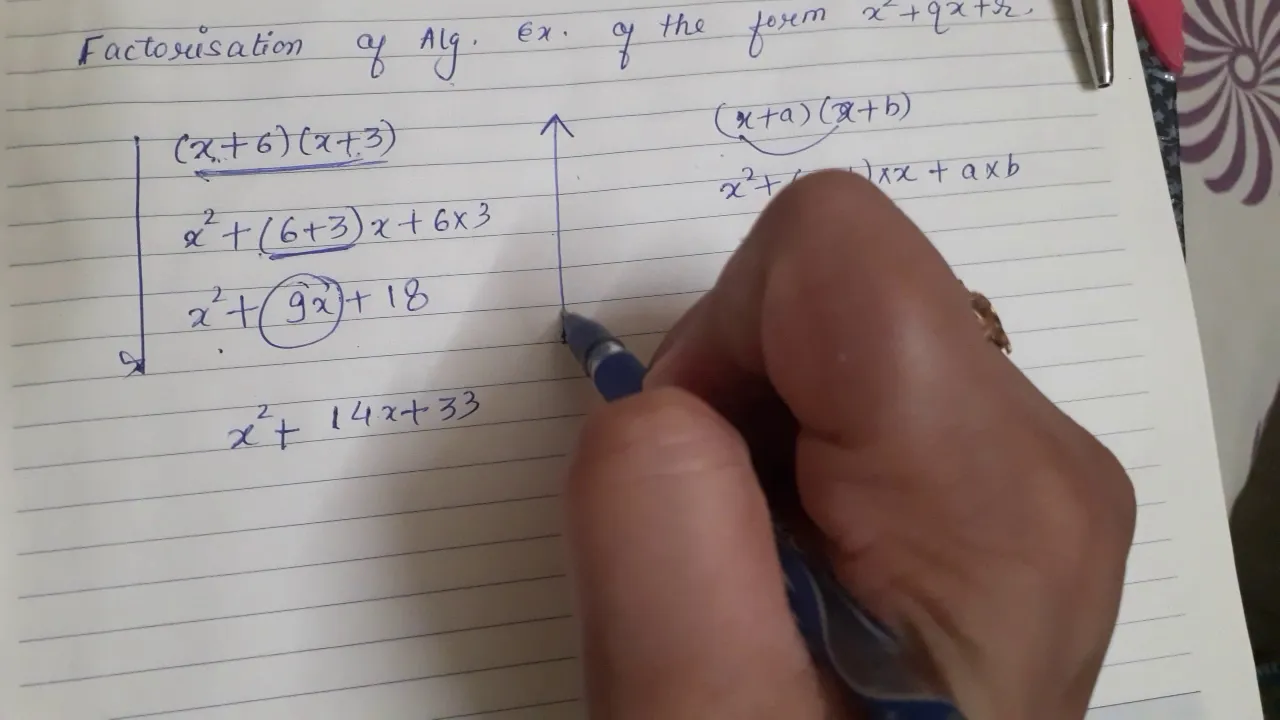 Factorisation of Alg. Ex. of the form x²+qx+r.
(x+6)(x+3)
x²+(6+3)x+6×3
x²+9x+18
x²+14x+33
(x+a)(x+b)
x²+( )×x+a×b